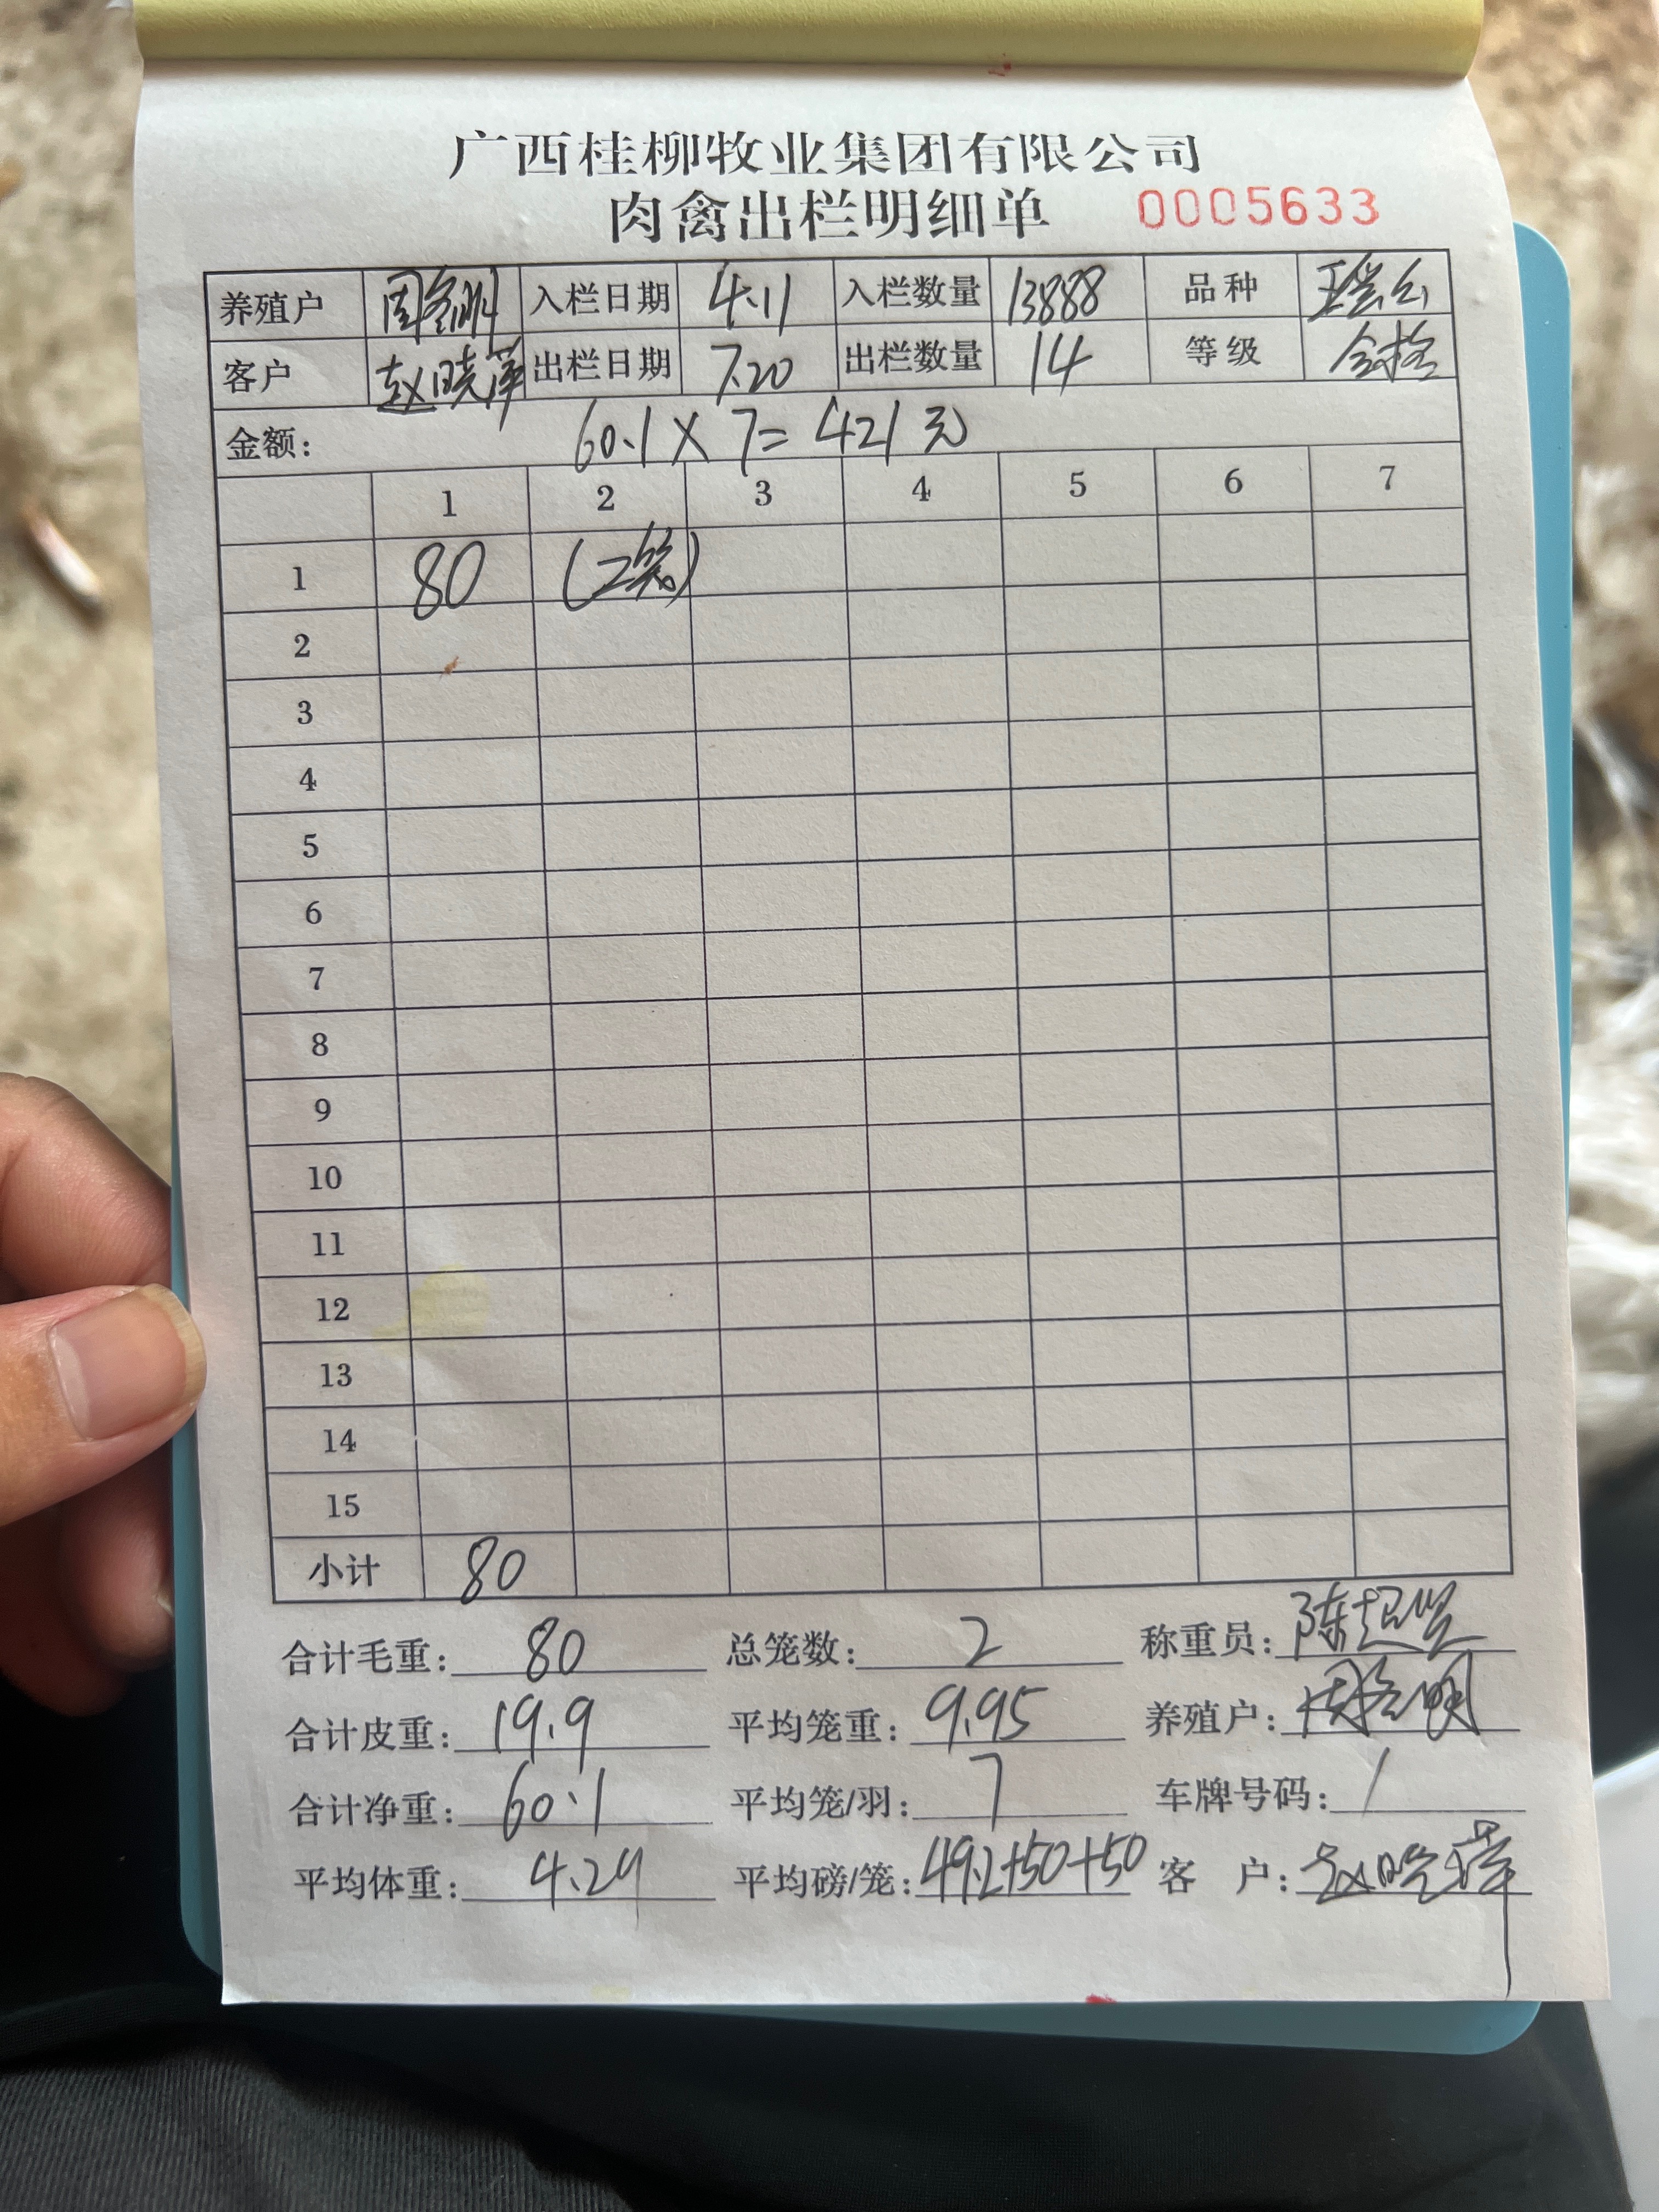 广西桂柳牧业集团有限公司
肉禽出栏明细单 0005633
养殖户 周 入栏日期 4.11 入栏数量 13888 品种
客户 赵晓萍 出栏日期 7.20 出栏数量 14 等级 合格
金额: 60.1×7=421元
1 2 3 4 5 6 7
1 80 (2笼)
2
3
4
5
6
7
8
9
10
11
12
13
14
15
小计 80
合计毛重: 80 总笼数: 2 称重员: 陈超
合计皮重: 19.9 平均笼重: 9.95 养殖户: 周 明
合计净重: 60.1 平均笼/羽: 7 车牌号码: /
平均体重: 4.29 平均磅/笼: 49.2+50+50 客 户: 赵晓萍